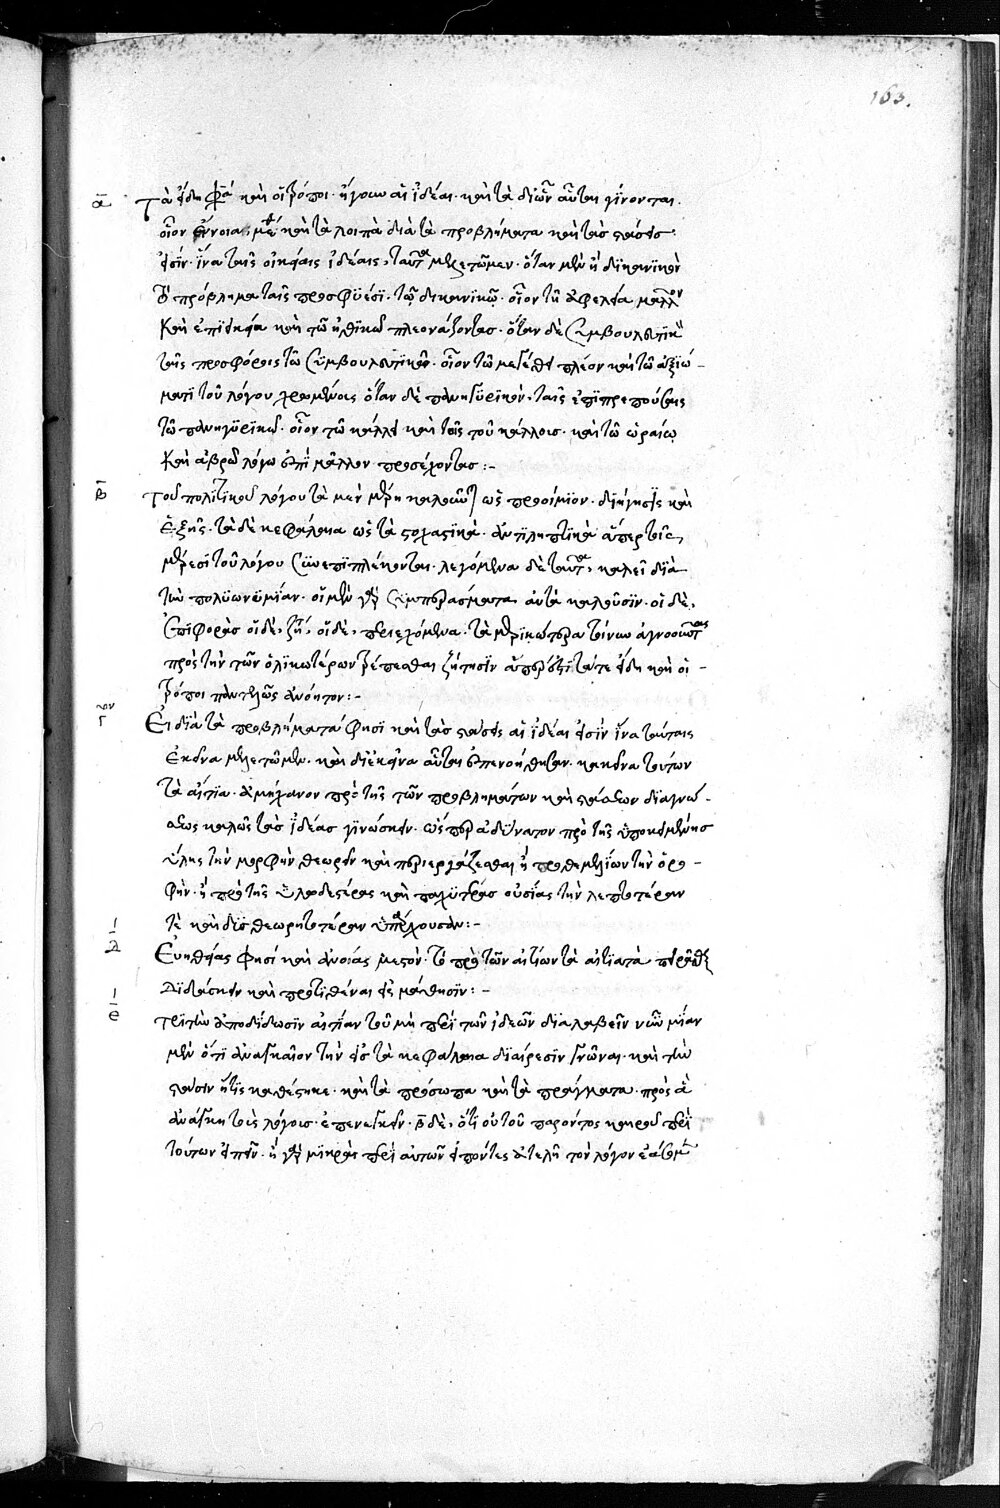 163.
α Τὰ εἴδη φα καὶ οἱ τρόποι· ἤγουν αἱ ἰδέαι· καὶ τὰ δι' ὧν αὗται γίνονται.
οἷον ἔννοια, καὶ τὰ λοιπὰ διὰ τὰ προβλήματα καὶ τὰς στάσεις
εἰσϊν· ἵνα ταῖς οἰκείαις ἰδέαις, ταῦτα μελετῶμεν· ὅταν μὲν ᾖ δϊκανϊκὸν
τὸ πρόβλημα ταῖς προσφυέσι τῷ δικανικῷ· οἷον τῇ ἀφελεία μᾶλλον
καὶ ἐπιεικεία καὶ τῶ ἠθϊκῶ πλεονάζοντας· ὅταν δὲ συμβουλευτϊκὸν
ταῖς προσφόροις τῶ συμβουλευτϊκῶ· οἷον τῶ μεγέθει πλέον καὶ τῶ ἀξιώ-
ματι τοῦ λόγου χρωμένοις ὅταν δὲ πανηγϋρϊκὸν, ταῖς ἐπϊπρεπούσαις
τῶ πανηγϋρϊκῶ· οἷον τῶ κάλλει καὶ τοῖς τοῦ κάλλους· καὶ τῶ ὡραίω
καὶ ἁβρῶ λόγω ἐπὶ μᾶλλον προσέχοντας:-
β Τοῦ πολϊτϊκοῦ λόγου τὰ μὲν μέρη καλοῦνται ὡς προοίμϊον· διήγησϊς καὶ
ἑξῆς· τὰ δὲ κεφάλαια ὡς τὰ στοχαστϊκὰ· ἀντϊληπτϊκὰ ἅπερ τοῖς
μέρεσϊ τοῦ λόγου συνεπϊπλέκονται· λεγόμενα δὲ ταῦτα, καλεῖ δϊὰ
τὴν πολϋωνυμίαν· οἱ μὲν γὰρ συμπεράσματα αὐτὰ καλοῦσϊν· οἱ δὲ,
ἐπϊφορὰς οἱ δὲ, οἱ δὲ, περιεχόμενα· τὰ μερϊκώτερα τοίνυν ἀγνοοῦντας
πρὸς τὴν τῶν ὁλϊκωτέρων τρέπεσθαι ζήτησϊν ἅπερ ἐστὶ τά τε εἴδη καὶ οἱ -
τρόποι παντελῶς ἀνόητον:-
γον Εἰ δϊὰ τὰ προβλήματα φησὶ καὶ τὰς στάσεις αἱ ἰδέαι εἰσὶν ἵνα ταύταις
ἐκεῖνα μελετῶμεν· καὶ δι' ἐκεῖνα αὗται ἐπενοήθησαν· κἀκεῖνα τούτων
τὰ αἴτϊα· ἀμήχανον πρὸ τῆς τῶν προβλημάτων καὶ στάσεων δϊαγνώ-
σεως καλῶς τὰς ἰδέας γϊνώσκειν· ὥσπερ ἀδύνατον πρὸ τῆς ὑποκειμένης
ὕλης τὴν μορφὴν θεωρεῖν καὶ περιεργάζεσθαι ἢ πρὸ θεμελίων τὴν ὀρο-
φὴν· ἢ πρὸ τῆς ὑλωδεστέρας καὶ παχϋτέρας οὐσίας τὴν λεπτοτέραν
τὲ καὶ δϋσθεωρητοτέραν ὑπάρχουσαν:-
δ Εὐηθείας φησὶ καὶ ἀνοίας μεστὸν· τὸ πρὸ τῶν αἰτίων τὰ αἰτϊατὰ
διδάσκειν καὶ προτϊθέναι εἰς μάθησϊν:-
ε Τρϊττὴν ἀποδίδωσϊν αἰτίαν τοῦ μὴ περὶ τῶν ἰδεῶν δϊαλαβεῖν νῦν μίαν
μὲν ὅτϊ ἀναγκαῖον τὴν εἰς τὰ κεφάλαια δϊαίρεσϊν γνῶναι· καὶ τὴν
στάσιν ἥτϊς καθέστηκε· καὶ τὰ πρόσωπα καὶ τὰ πράγματα· πρὸς ἃ
ἀνάγκη τοὺς λόγους· ἐπενεγκεῖν· β δὲ, ὅτϊ οὐ τοῦ παρόντος καιροῦ περὶ
τούτων εἰπεῖν· ἢ γὰρ μϊκρὰ περὶ αὐτῶν εἰπόντες ἀτελῆ τὸν λόγον ἐάσομεν